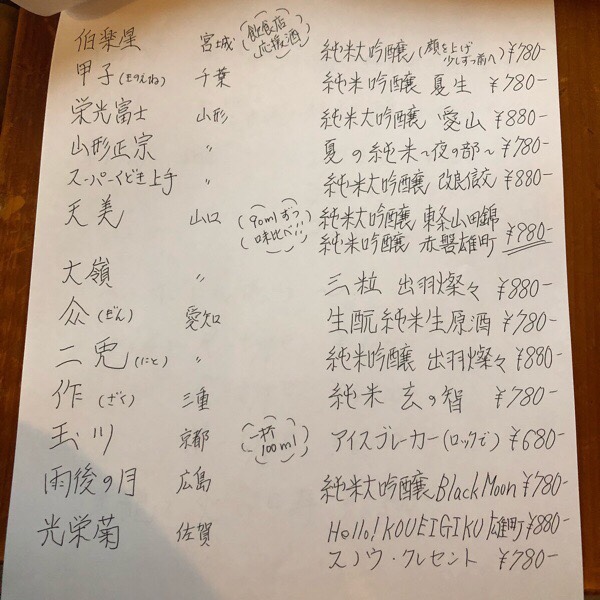 伯楽星 宮城 (飲食店応援酒) 純米大吟醸(顔を上げ少しずつ前へ) ¥780-
甲子(きのえね) 千葉 純米吟醸 夏生 ¥780-
栄光富士 山形 純米大吟醸 愛山 ¥880-
山形正宗 〃 夏の純米〜夜の部〜 ¥780-
スーパーくどき上手 〃 純米大吟醸 改良信交 ¥880-
天美 山口 (90mlずつ味比べ!!) 純米大吟醸 東条山田錦
純米吟醸 赤磐雄町 ¥980-
大嶺 〃 三粒 出羽燦々 ¥880-
尛(ぜん) 愛知 生酛純米生原酒 ¥780-
二兎(にと) 〃 純米吟醸 出羽燦々 ¥880-
作(ざく) 三重 純米 玄の智 ¥780-
玉川 京都 (一杯100ml) アイスブレーカー(ロックで) ¥680-
雨後の月 広島 純米大吟醸 Black Moon ¥780-
光栄菊 佐賀 Hello! KOUEIGIKU 雄町 ¥880-
スノウ・クレセント ¥780-